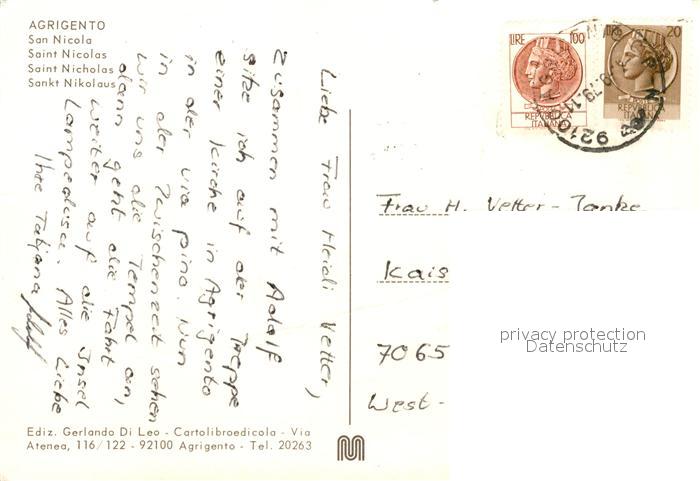 AGRIGENTO
San Nicola
Saint Nicolas
Saint Nicholas
Sankt Nikolaus
Liebe Frau Heidi Vetter,
Zusammen mit Adolf
sitze ich auf der Treppe
einer Kirche in Agrigento
in der via pino. Nun
in der Zwischenzeit sehen
wir uns die Tempel an,
dann geht die Fahrt
weiter auf die Insel
Lampedusa. Alles Liebe
Ihre Tatjana
Ediz. Gerlando Di Leo - Cartolibroedicola - Via
Atenea, 116/122 - 92100 Agrigento - Tel. 20263
LIRE 100
REPUBBLICA
ITALIANA
LIRE 20
REPUBBLICA
ITALIANA
Frau H. Vetter-
Kais
7065
West-
privacy protection
Datenschutz